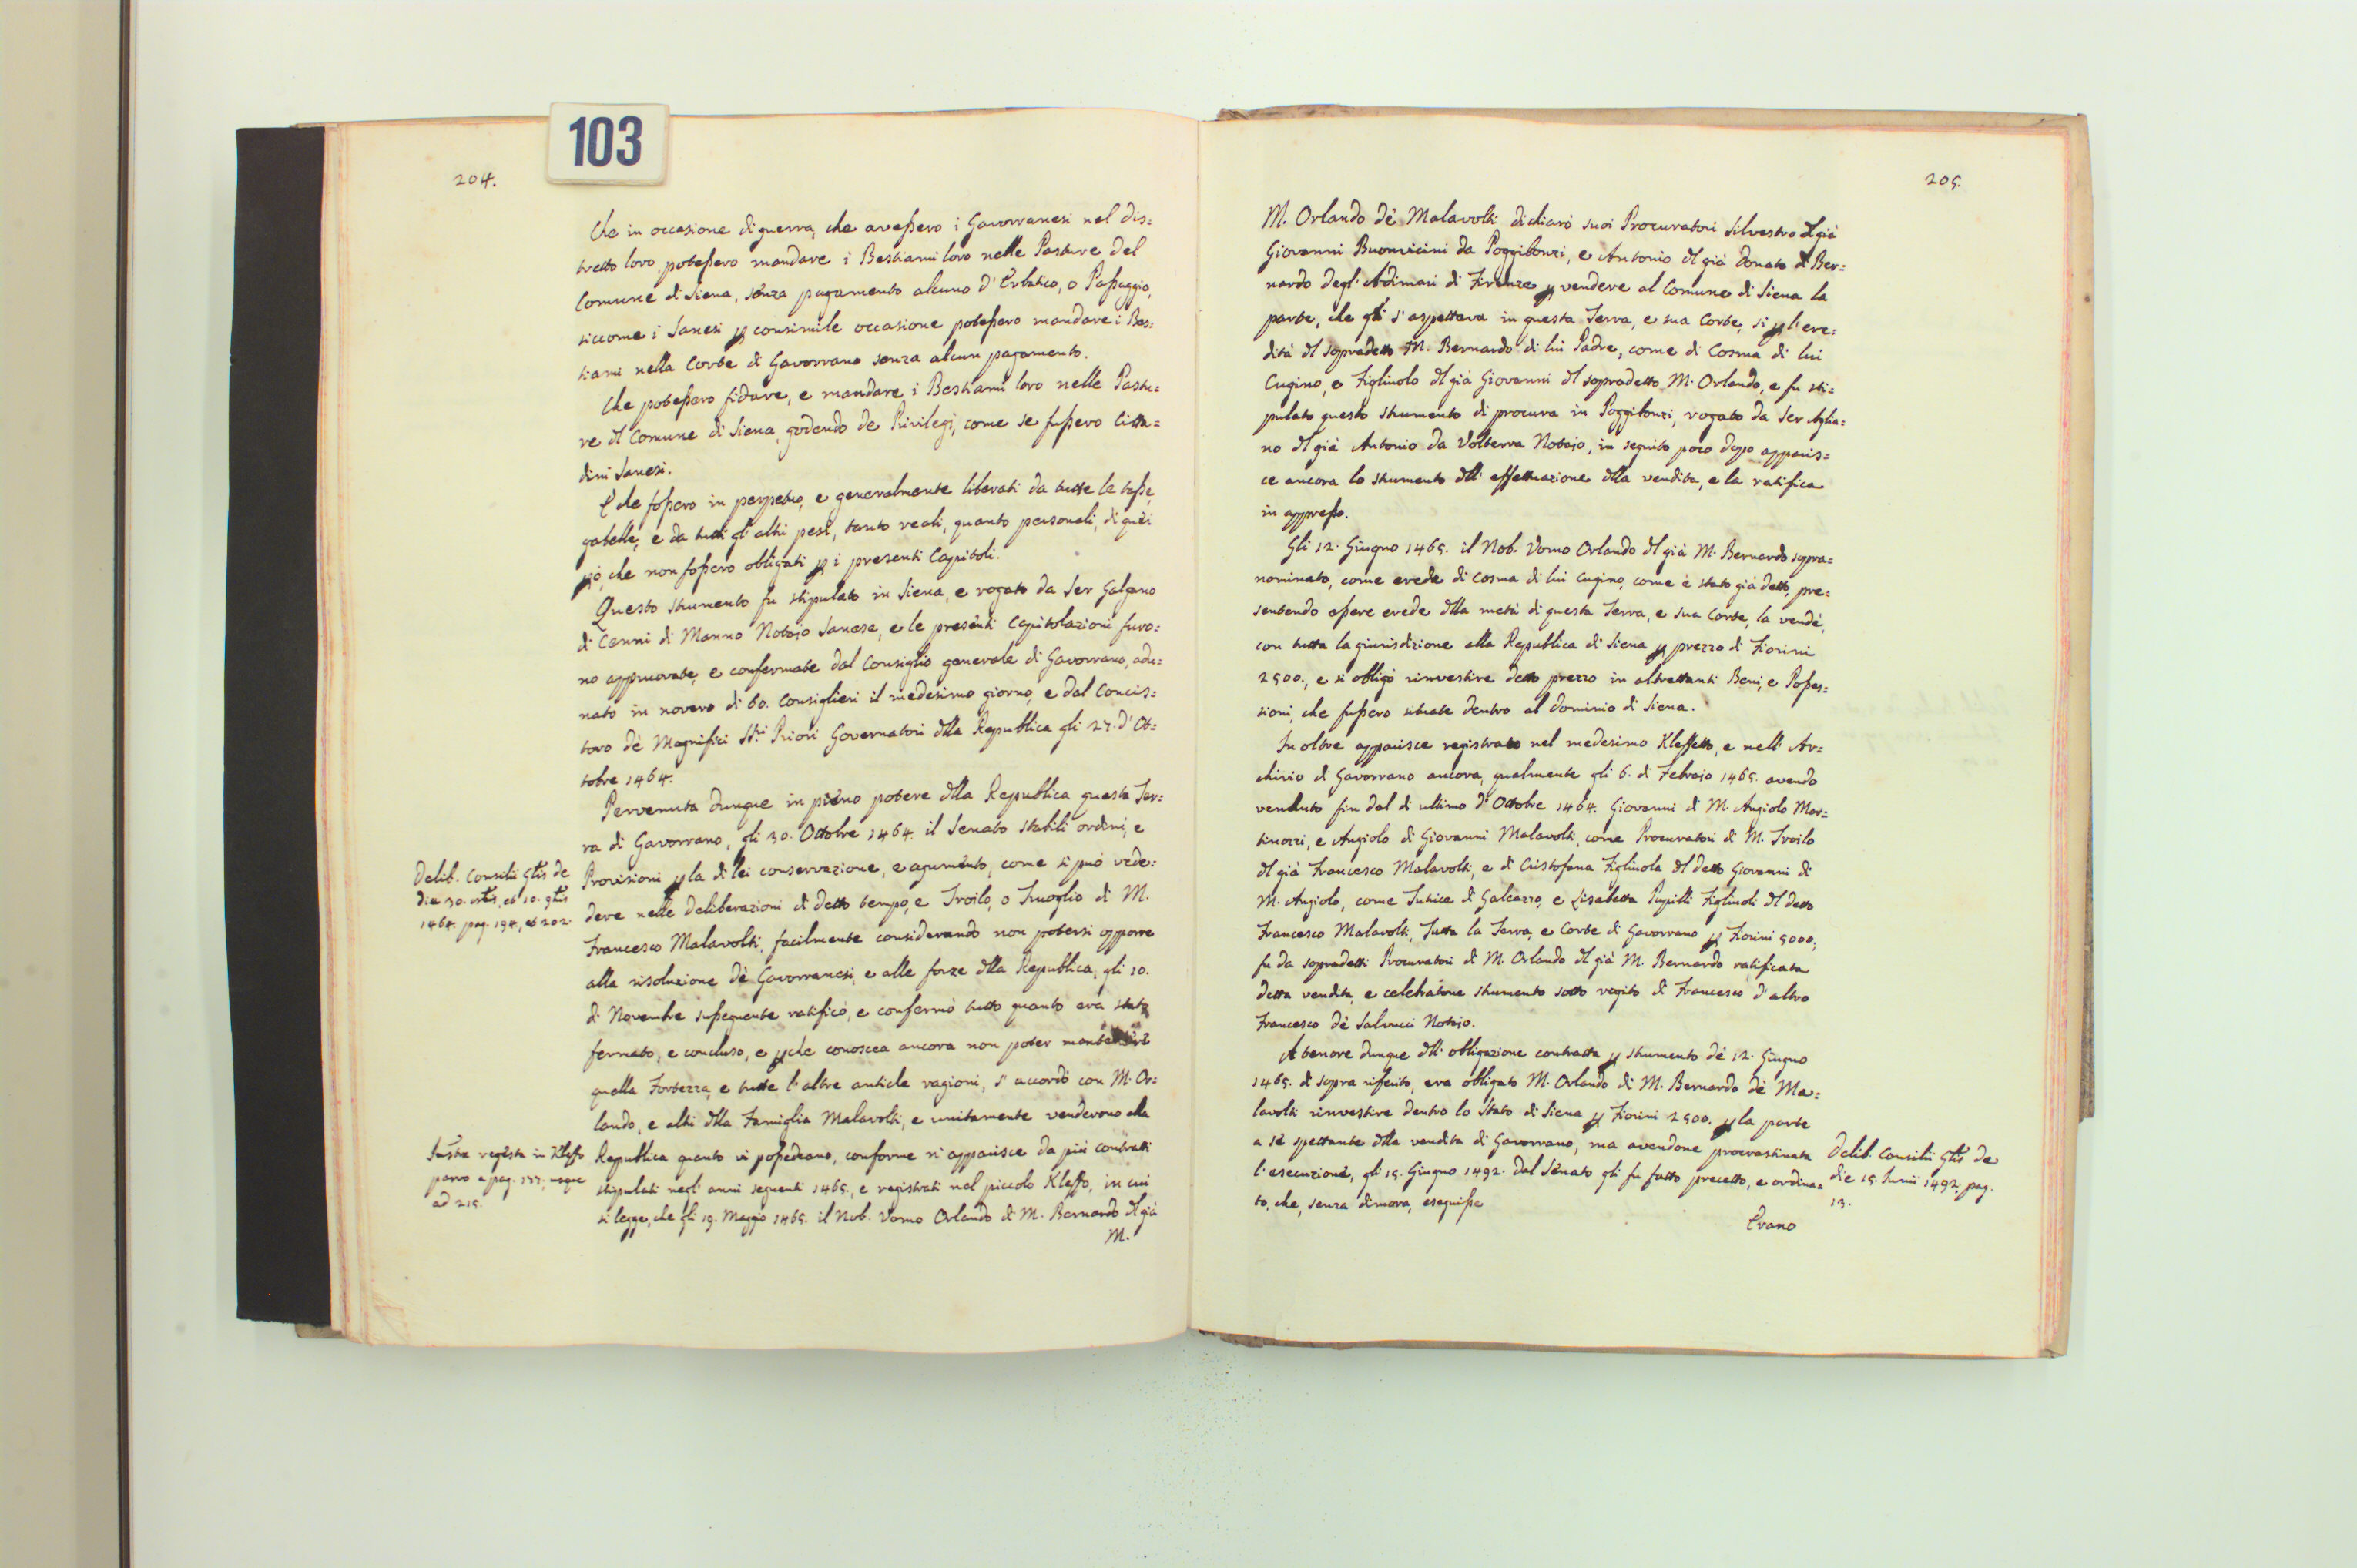 103
204.
Che in occasione di guerra, che avessero i Gavorranesi nel dis=
tretto loro, potessero mandare i Bestiami loro nelle Pasture del
Comune di Siena, senza pagamento alcuno d'Erbatico, o Passaggio,
siccome i Sanesi p consimile occasione potessero mandare i Bes=
tiami nella Corte di Gavorrano senza alcun pagamento.
Che potessero fidare, e mandare i Bestiami loro nelle Pastu=
re dl Comune di Siena, godendo de Privilegi, come se fussero Citta=
dini Sanesi.
E che fossero in perpetuo, e generalmente liberati da tutte le tasse,
gabelle, e da tutti gl'altri pesi, tanto reali, quanto personali, di quei
pió, che non fossero obligati p i presenti Capitoli.
Questo strumento fu stipulato in Siena, e rogato da Ser Galgano
di Cenni di Manno Notaio Sanese, e le presenti Capitolazioni furo=
no appruovate, e confermate dal Consiglio generale di Gavorrano, adu=
nato in novero di 60. Consiglieri il medesimo giorno, e dal Concis=
toro dè Magnifici SSri Priori Governatori dlla Republica gli 27. d'Ot=
tobre 1464.
Pervenuta dunque in pieno potere dlla Republica questa Ter=
ra di Gavorrano, gli 30. Ottobre 1464. il Senato stabilì ordini, e
Provisioni p la di lei conservazione, e augumento, come si può vede=
dere nelle deliberazioni di detto tempo, e Troilo, o Truoglio di M.
Francesco Malavolti, facilmente considerando non potersi opporre
alla risoluzione dè Gavorranesi, e alle forze dlla Republica, gli 10.
di Novembre susseguente ratificò, e confermò tutto quanto era stato
fermato, e concluso, e pche conoscea ancora non poter
quella Fortezza, e tutte l'altre antiche ragioni, s'accordò con M. Or=
lando, e altri dlla Famiglia Malavolti, e unitamente venderono alla
Republica quanto vi possedeano, conforme n'apparisce da più contratti
stipulati negl'anni seguenti 1465., e registrati nel piccolo Kleffo, in cui
si legge, che gli 19. Maggio 1465. il Nob. Uomo Orlando di M. Bernardo dl già
M.
Delib. Consilii Glis de
die 30. 8bris, et 10. 9bris
1464. pag. 194., et 202.
Instra regista in Kleffo
parvo a pag. 177. usque
ad 215.
205.
M. Orlando dè Malavolti dichiarò suoi Procuratori Silvestro dl già
Giovanni Buonvicini da Poggibonzi, e Antonio dl già Donato di Ber=
nardo degl'Adimari di Firenze p vendere al Comune di Siena la
parte, che gli s'aspettava in questa Terra, e sua Corte, si p l'ere=
dità dl sopradetto M. Bernardo di lui Padre, come di Cosma di lui
Cugino, e Figliuolo dl già Giovanni dl sopradetto M. Orlando, e fu sti=
pulato questo strumento di procura in Poggibonzi, rogato da Ser Aglia=
no dl già Antonio da Volterra Notaio, in seguito poco dopo apparis=
ce ancora lo strumento dll'effettuazione dlla vendita, e la ratifica
in appresso.
Gli 12. Giugno 1465. il Nob. Uomo Orlando dl già M. Bernardo sopra=
nominato, come erede di Cosma di lui cugino, come è stato già detto, pre=
sentendo essere erede dlla metà di questa Terra, e sua Corte, la vendè,
con tutta la giurisdizione alla Republica di Siena p prezzo di Fiorini
2500., e si obligò rinvestire detto prezzo in altrettanti Beni, e Posses=
sioni, che fussero situate dentro al dominio di Siena.
In oltre apparisce registrato nel medesimo Kleffetto, e nell'Ar=
chivio di Gavorrano ancora, qualmente gli 6. di Febraio 1465. avendo
venduto fin dal dì ultimo d'Ottobre 1464. Giovanni di M. Angiolo Mar=
tinozzi, e Angiolo di Giovanni Malavolti, come Procuratori di M. Troilo
dl già Francesco Malavolti, e di Cristofana Figliuola dl detto Giovanni di
M. Angiolo, come Tutrice di Galeazzo, e Lisabetta Pupilli Figliuoli dl detto
Francesco Malavolti, Tutta la Terra, e Corte di Gavorrano p Fiorini 5000,
fu da sopradetti Procuratori di M. Orlando dl già M. Bernardo ratificata
detta vendita, e celebratone strumento sotto rogito di Francesco d'altro
Francesco dè Salvucci Notaio.
A tenore dunque dll'obligazione contratta p strumento dè 12. Giugno
1465. di sopra riferito, era obligato M. Orlando di M. Bernardo dè Ma=
lavolti rinvestire dentro lo Stato di Siena p Fiorini 2500. p la parte
a sè spettante dlla vendita di Gavorrano, ma avendone procrastinata
l'esecuzione, gli 15. Giugno 1492. dal Senato gli fu fatto precetto, e ordina=
to, che, senza dimora, eseguisse
Erano
Delib. Consilii Glis de
die 15. Iunii 1492. pag.
13.